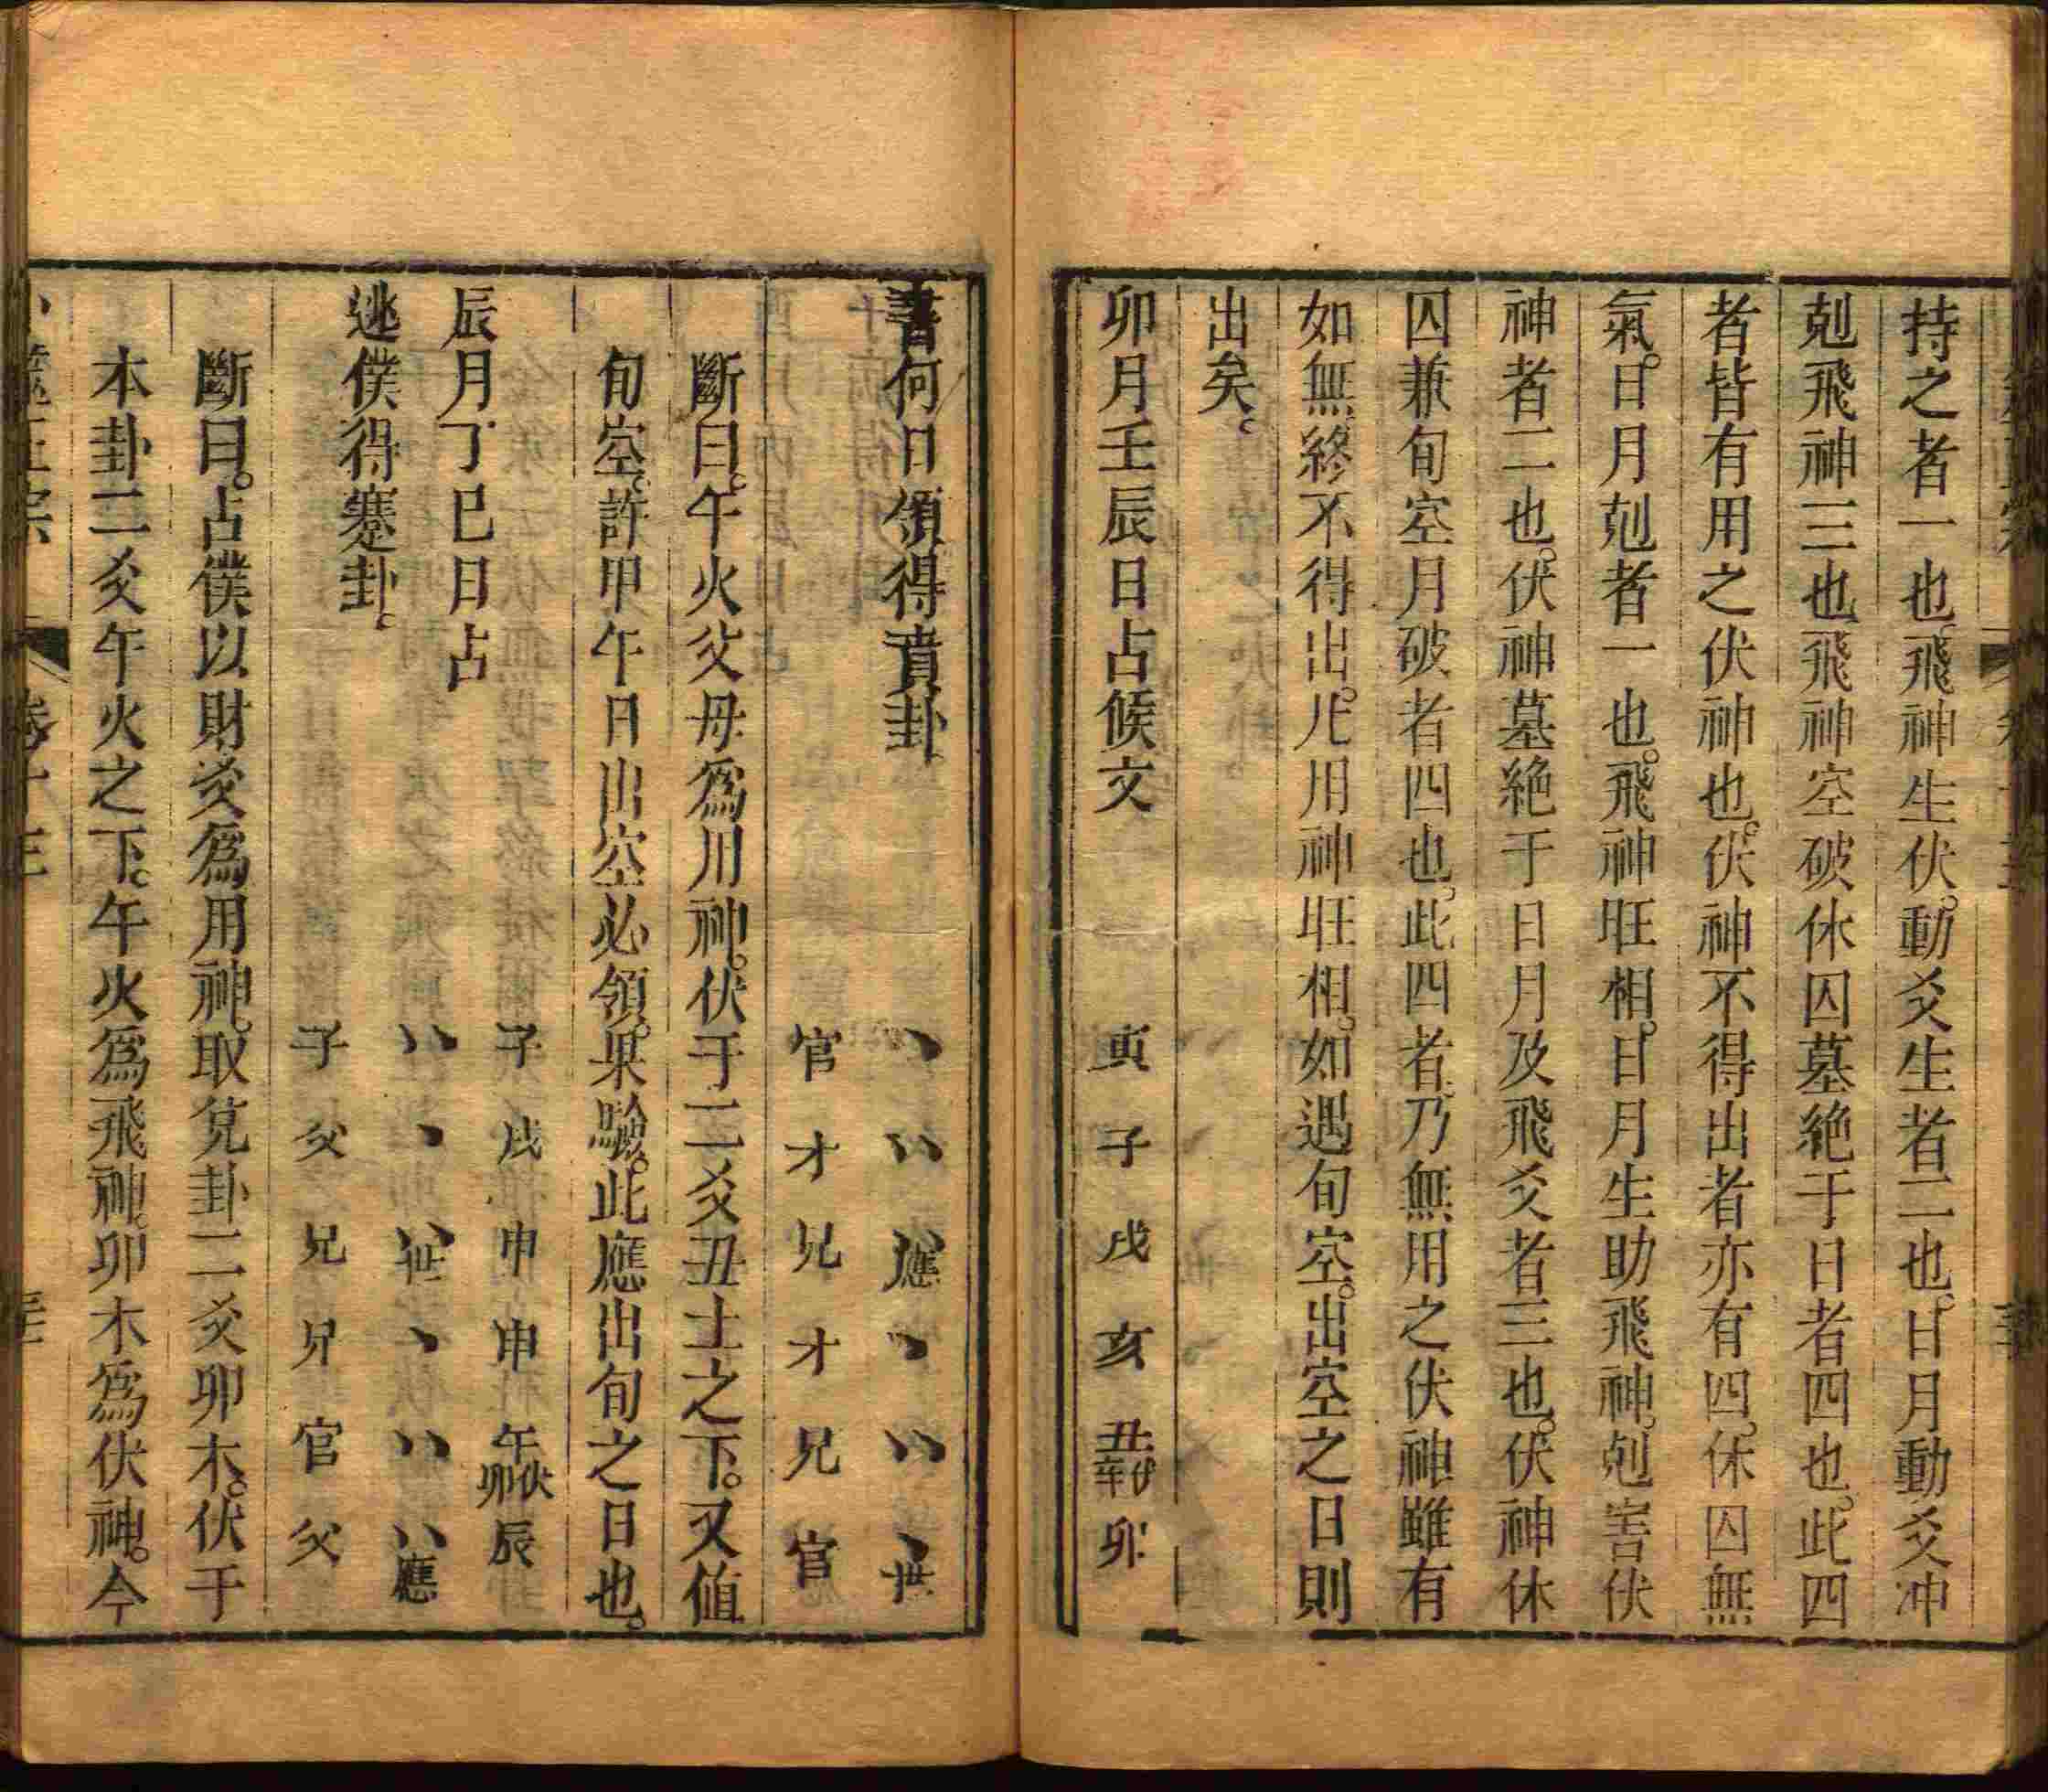 持之者一也飛神生伏。動爻生者二也。日月動爻冲
剋飛神三也飛神空破休囚墓絶于日者四也。此四
者皆有用之伏神也。伏神不得出者亦有四。休囚無
氣。日月剋者一也。飛神旺相。日月生助飛神。剋害伏
神者二也。伏神墓絶于日月及飛爻者三也。伏神休
囚兼旬空月破者四也。此四者乃無用之伏神雖有
如無終不得出。凡用神旺相。如遇旬空。出空之日則
出矣。
卯月壬辰日占候文 寅 子 戌 亥 丑 卯
書何日領得賁卦 、 〃 〃應 、 〃 、世
官 才 兄 才 兄 官
斷曰。午火父母爲用神。伏于二爻丑土之下。又值
旬空。許甲午日出空必領。果驗。此應出旬之日也。
辰月丁巳日占 子 戌 申 申 午伏卯 辰
逃僕得蹇卦。 〃 、 〃世 、 〃 〃應
子 父 兄 兄 官 父
斷曰。占僕以財爻爲用神。取兌卦二爻卯木。伏于
本卦二爻午火之下。午火爲飛神。卯木爲伏神。今
卷十三